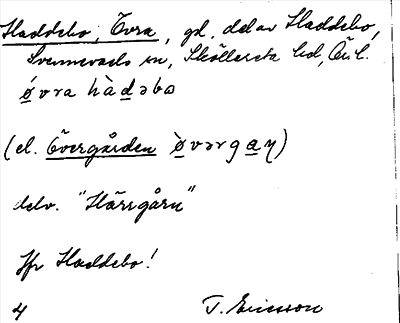 Haddebo, Övra, gd, del av Haddebo,
Svennevads sn, Sköllersta hd, Ör. l.
ǿvra hàdəbω
(el. Övergården ø̀vərgaɳ)
delv. "Härrgårn"
Jfr Haddebo!
4 T. Ericsson